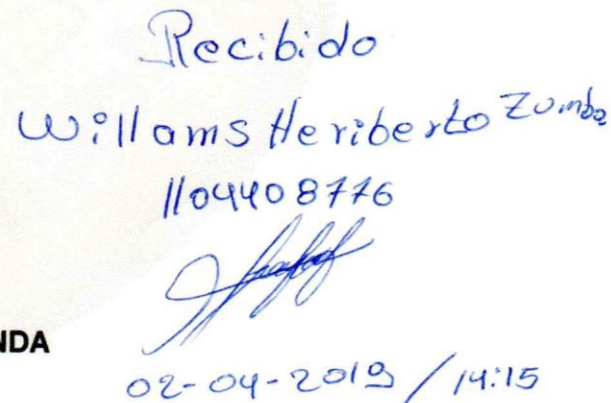 Recibido
Willams Heriberto Zumba
1104408776
NDA
02-04-2019 / 14:15